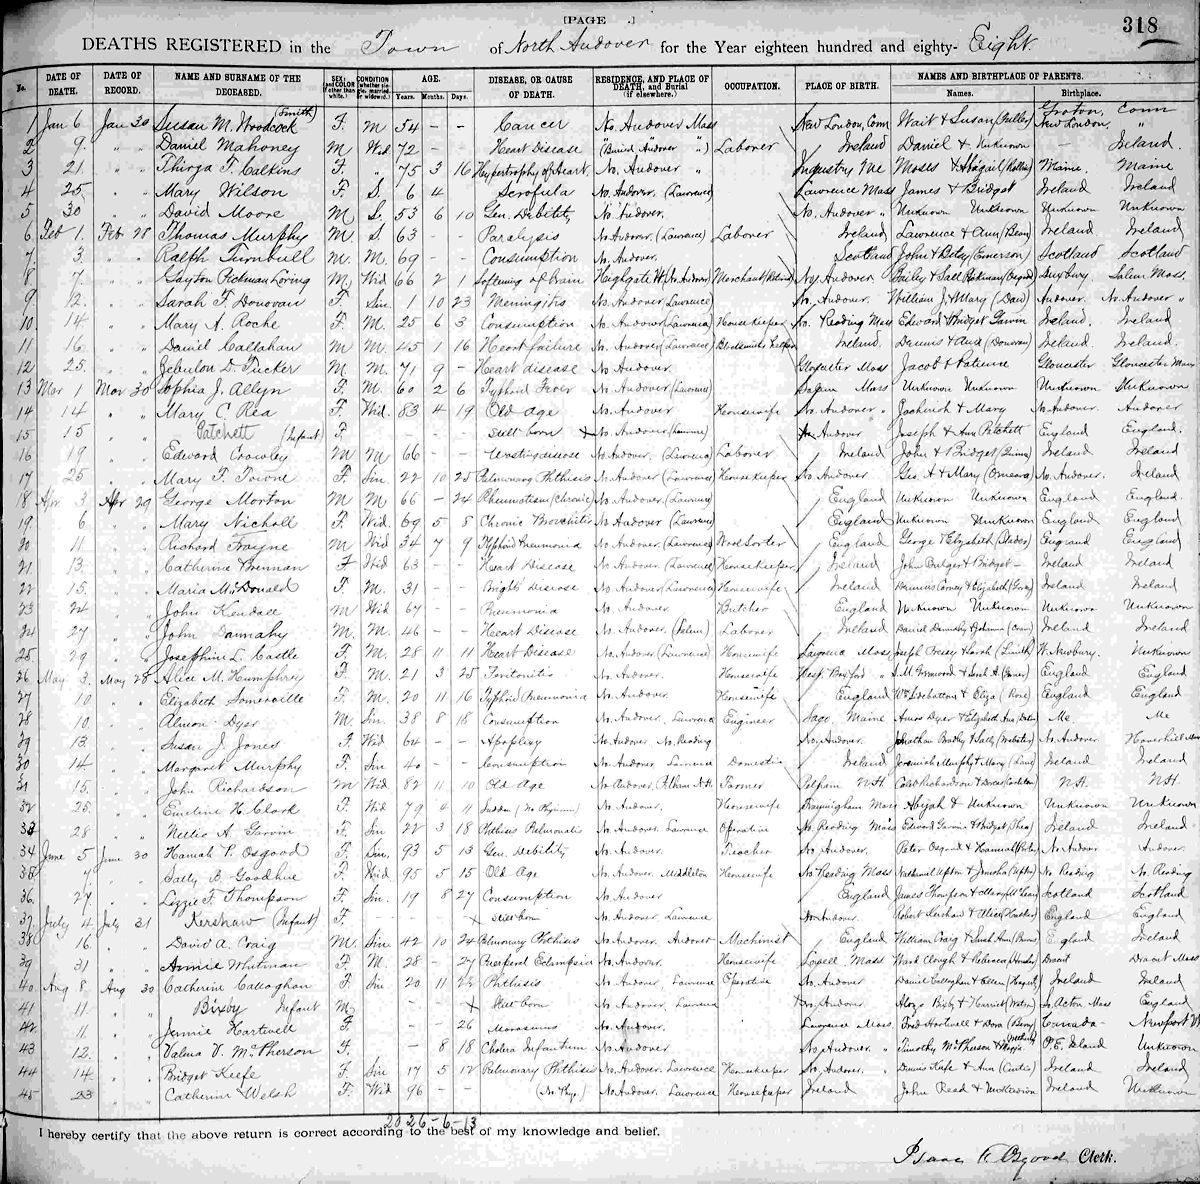 [PAGE .]
318
DEATHS REGISTERED in the Town of North Andover for the Year eighteen hundred and eighty- Eight
No. DATE OF DEATH. DATE OF RECORD. NAME AND SURNAME OF THE DECEASED. SEX; (and COLOR if other than white.) CONDITION (whether single, married, or widowed.) AGE. Years. Months. Days. DISEASE, OR CAUSE OF DEATH. RESIDENCE, AND PLACE OF DEATH, and Burial (if elsewhere.) OCCUPATION. PLACE OF BIRTH. NAMES AND BIRTHPLACE OF PARENTS. Names. Birthplace.
1 Jan 6 Jan 30 Susan M. Woodcock (Smith) F. M 54 – – Cancer No. Andover Mass New London, Conn Wait & Susan Groton, Conn New London, "
2 9. " " Daniel Mahoney M Wid 72 – – Heart Disease (Buried Andover ") Laborer Ireland Daniel & Unknown – Ireland.
3 21. " " Thirza T. Calkins F. " 75 3 16 Hypertrophy of Heart. No. Andover " Industry Me Moses & Abigail Maine. Maine
4 25. " " Mary Wilson F S. 6 4 Scrofula No. Andover. (Lawrence) Lawrence Mass James & Bridget Ireland Ireland
5 30 " " David Moore M S. 53 6 10 Gen. Debility No. Andover. No. Andover " Unknown Unknown Unknown Unknown
6 Feb 1. Feb 28 Thomas Murphy M S 63 – – Paralysis No. Andover. (Lawrence) Laborer Ireland Lawrence & Ann Ireland. Ireland.
7 3. " " Ralph Turnbull M M. 69 – – Consumption No. Andover. Scotland John & Betsy (Emerson) Scotland Scotland
8 7. " " Gayton Pickman Loring M Wid 66 2 1 Softening of Brain Highgate Vt. (No. Andover) Merchant No. Andover Baily & Sall Pickman (Osgood) Duxbury Salem Mass.
9 12. " " Sarah F. Donovan F Sin. 1 10 23 Meningitis No. Andover (Lawrence) No. Andover. William J. & Mary (Daw) Andover. No. Andover "
10 14 " " Mary A. Roche F. M. 25 6 3 Consumption No. Andover (Lawrence) Housekeeper No. Reading Mass Edward & Bridget Garvin Ireland. Ireland
11 16. " " Daniel Callahan M M. 45 1 16 Heart failure No. Andover (Lawrence) Blacksmiths Helper Ireland. Dennis & Ann (Donovan) Ireland. Ireland.
12 25. " " Zebulon D. Tucker M M. 71 9 – Heart disease No. Andover. Gloucester Mass Jacob & Patience Gloucester Gloucester Mass
13 Mar 1 Mar 30 Sophia J. Allyn F. M. 60 2 6 Typhoid Fever No. Andover (Lawrence) Mass Unknown Unknown Unknown Unknown
14 14 " " Mary C. Rea F. Wid. 83 4 19 Old Age No. Andover Housewife No. Andover " & Mary No. Andover. Andover
15 15 " " Patchett (Infant) F. – – – Still born No. Andover (Lawrence) No. Andover Joseph & Ann Patchett England England.
16 19 " " Edward Crowley M M 66 – – Wasting disease No. Andover. (Lawrence) Laborer Ireland John & Bridget (Quinn) Ireland Ireland
17 25 " " Mary F. Towne F. Sin 22 10 25 Pulmonary Phthisis No. Andover (Lawrence) Housekeeper No. Andover Geo. A & Mary (Omeara) No. Andover. Ireland
18 Apr 3. Apr 29 George Morton M M. 66 – 24 Rheumatism (Chronic) No. Andover (Lawrence) England Unknown Unknown England England.
19 6 " " Mary Nicholl F. Wid. 69 5 8 Chronic Bronchitis No. Andover (Lawrence) England Unknown Unknown England England
20 11 " " Richard Frayne M Wid 34 7 9 Typhoid Pneumonia No. Andover. (Lawrence) Woolsorter England George & Elizabeth England England
21 13. " " Catherine Brennan F Wid 63 – – Heart Disease No. Andover. (Lawrence) Housekeeper Ireland John Bulger & Bridget – Ireland Ireland
22 15. " " Maria McDonald F. M. 31 – – Brights Disease No. Andover (Lawrence) Housewife Ireland & Elizabeth Ireland Ireland
23 24 " " John Kendall M Wid 67 – – Pneumonia No. Andover. Butcher England Unknown Unknown Unknown Unknown
24 27 " " John M. M. 46 – – Heart Disease No. Andover. (Salem) Laborer Ireland Daniel Ireland Ireland
25 29 " " Josephine L. Castle F. M. 28 11 11 Heart Disease No. Andover (Lawrence) Housewife Lawrence Mass Joseph & Sarah W. Newbury. Unknown
26 May 3. May 28 Alice M. Humphrey F. M. 21 3 25 Peritonitis No. Andover Housewife West Boxford " England England
27 10 " " Elizabeth Somerville F. M. 20 11 16 Typhoid Pneumonia No. Andover Housewife England Wm Sidebottom & Eliza England England
28 10. " " Almon Dyer M Sin. 38 8 18 Consumption No. Andover, Lawrence Engineer Saco Maine Amos Dyer & Elizabeth Ann Me Me
29 13. " " Susan J. Jones F. Wid 64 – – Apoplexy No. Andover No. Reading No. Andover. Jonathan Bradley & Sally (Webster) No. Andover Haverhill Mass
30 14 " " Margaret Murphy F. Sin 40 – – Consumption No. Andover Lawrence Domestic Ireland Jeremiah Murphy & Mary Ireland Ireland
31 15. " " John Richardson M Wid 82 11 10 Old Age No. Andover, Pelham N.H. Farmer Pelham N.H. Caleb Richardson & Dorcas N.H. N.H.
32 25. " " Emeline H. Clark F. Wid 79 4 11 Sudden (No Physician) No. Andover. Housewife Framingham Mass Abijah & Unknown Unknown Unknown
33 28 " " Nellie A. Garvin F. Sin 22 3 18 Phthisis Pulmonalis No. Andover. Lawrence Operative No. Reading Mass Edward Garvin & Bridget (Shea) Ireland Ireland
34 June 5 June 30 Hannah P. Osgood F. Sin. 93 5 13 Gen. Debility No. Andover. Teacher No. Andover. Peter Osgood & Hannah No. Andover Andover.
35 7 " " Sally B. Goodhue F. Wid 95 5 15 Old Age No. Andover. Middleton Housewife No. Reading Mass Nathaniel Upton & Jerusha (Upton) No. Reading No. Reading
36 27 " " Lizzie F. Thompson F. Sin. 19 8 27 Consumption No. Andover England James Thompson & Scotland Scotland
37 July 4 July 31 Kershaw (Infant) F. – – – Still born No. Andover, Lawrence No. Andover. Robert Kershaw & Alice England England
38 16. " " David A. Craig M. Sin 42 10 24 Pulmonary Phthisis No. Andover. Andover Machinist England William Craig & Sarah Ann England Ireland
39 31 " " Annie Whitman F. M. 28 – 27 Puerperal Eclampsia No. Andover. Housewife Lowell, Mass Ward Clough & Rebecca Dracut Dracut Mass
40 Aug 8. Aug 30 Catherine Callaghan F. Sin 20 11 22 Phthisis No. Andover, Lawrence Operative No. Andover Daniel Callaghan & Ellen Ireland Ireland
41 11. " " Bixby Infant M – – – Still born No. Andover, Lawrence No. Andover. Alonzo Bixby & Harriet (Watson) So. Acton Mass England
42 11 " " Jennie Hartwell F. – – 26 Marasmus No. Andover. Lawrence Mass. Fred Hartwell & Dora (Berry) Canada – Newport Vt
43 12. " " Valma V. McPherson F. – 8 18 Cholera Infantum No. Andover No. Andover. " Timothy McPherson & Maggie P.E. Island Unknown
44 14. " " Bridget Keefe F. Sin 17 5 12 Pulmonary Phthisis No. Andover. Lawrence Housekeeper No. Andover. " Dennis Keefe & Ann (Curtin) Ireland Ireland
45 23 " " Catherine Welsh F. Wid 96 – – (No Phys.) No. Andover. Lawrence Housekeeper Ireland John Read & Unknown Ireland Unknown
2026-6-13
I hereby certify that the above return is correct according to the best of my knowledge and belief.
Isaac F. Osgood Clerk.